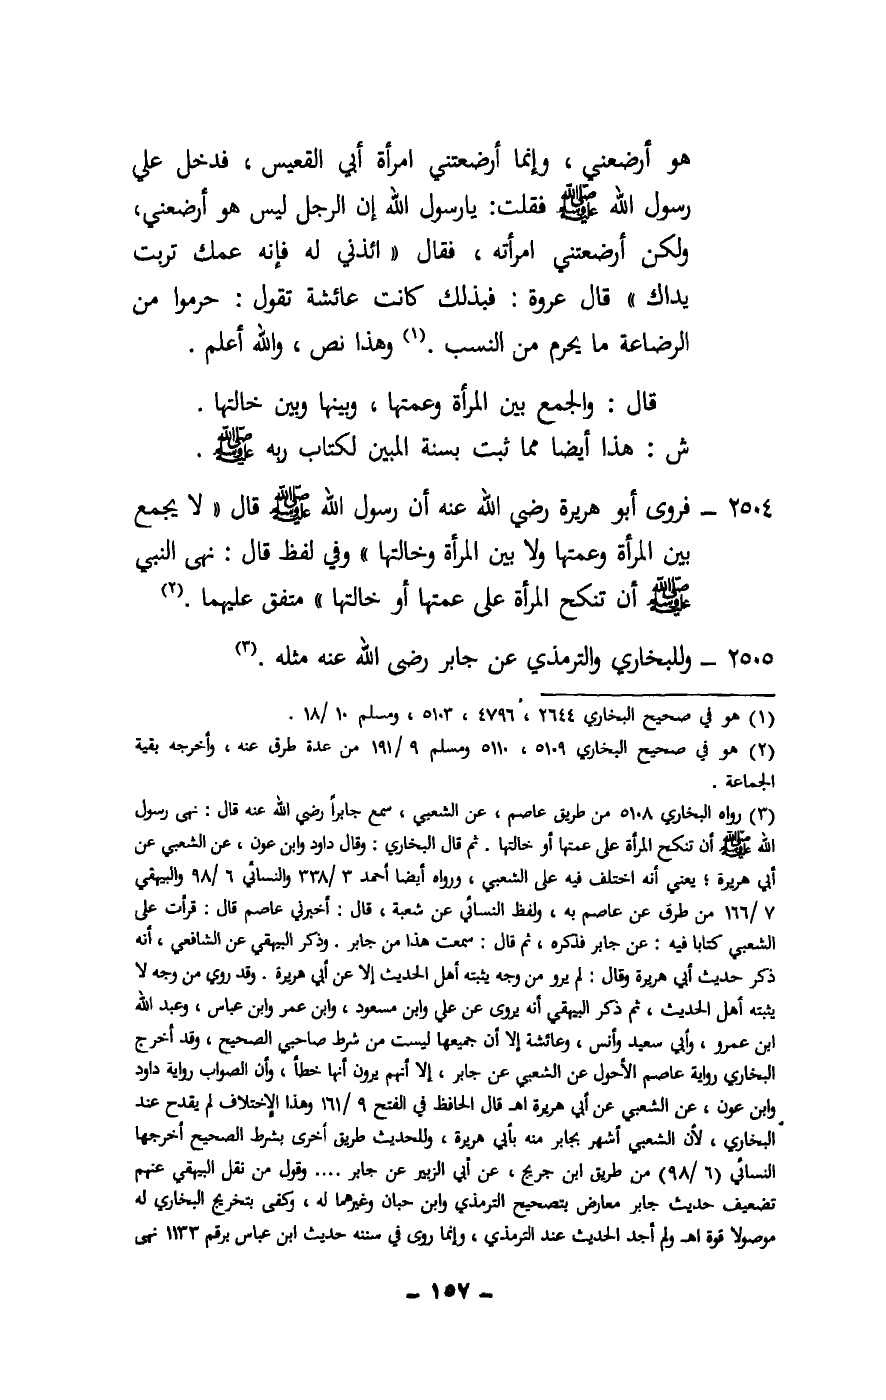 هو أرضعني ، وإنما أرضعتني امرأة أبي القعيس ، فدخل علي
رسول الله ﷺ فقلت: يارسول الله إن الرجل ليس هو أرضعني،
ولكن أرضعتني امرأته ، فقال « ائذني له فإنه عمك تربت
يداك » قال عروة : فبذلك كانت عائشة تقول : حرموا من
الرضاعة ما يحرم من النسب .(١) وهذا نص ، والله أعلم .
قال : والجمع بين المرأة وعمتها ، وبينها وبين خالتها .
ش : هذا أيضا مما ثبت بسنة المبين لكتاب ربه ﷺ .
٢٥٠٤ – فروى أبو هريرة رضي الله عنه أن رسول الله ﷺ قال « لا يجمع
بين المرأة وعمتها ولا بين المرأة وخالتها » وفي لفظ قال : نهى النبي
ﷺ أن تنكح المرأة على عمتها أو خالتها » متفق عليهما .(٢)
٢٥٠٥ – وللبخاري والترمذي عن جابر رضى الله عنه مثله .(٣)
(١) هو في صحيح البخاري ٢٦٤٤ ، ٤٧٩٦ ، ٥١٠٣ ، ومسلم ١٠ /١٨ .
(٢) هو في صحيح البخاري ٥١٠٩ ، ٥١١٠ ومسلم ٩ /١٩١ من عدة طرق عنه ، وأخرجه بقية
الجماعة .
(٣) رواه البخاري ٥١٠٨ من طريق عاصم ، عن الشعبي ، سمع جابراً رضي الله عنه قال : نهى رسول
الله ﷺ أن تنكح المرأة على عمتها أو خالتها . ثم قال البخاري : وقال داود وابن عون ، عن الشعبي عن
أبي هريرة ؛ يعني أنه اختلف فيه على الشعبي ، ورواه أيضا أحمد ٣ /٣٣٨ والنسائي ٦ /٩٨ والبيهقي
٧ /١٦٦ من طرق عن عاصم به ، ولفظ النسائي عن شعبة ، قال : أخبرني عاصم قال : قرأت على
الشعبي كتابا فيه : عن جابر فذكره ، ثم قال : سمعت هذا من جابر . وذكر البيهقي عن الشافعي ، أنه
ذكر حديث أبي هريرة وقال : لم يرو من وجه يثبته أهل الحديث إلا عن أبي هريرة . وقد روي من وجه لا
يثبته أهل الحديث ، ثم ذكر البيهقي أنه يروى عن علي وابن مسعود ، وابن عمر وابن عباس ، وعبد الله
ابن عمرو ، وأبي سعيد وأنس ، وعائشة إلا أن جميعها ليست من شرط صاحبي الصحيح ، وقد أخرج
البخاري رواية عاصم الأحول عن الشعبي عن جابر ، إلا أنهم يرون أنها خطأ ، وأن الصواب رواية داود
وابن عون ، عن الشعبي عن أبي هريرة اهـ قال الحافظ في الفتح ٩ /١٦١ وهذا الإختلاف لم يقدح عند
البخاري ، لأن الشعبي أشهر بجابر منه بأبي هريرة ، وللحديث طريق أخرى بشرط الصحيح أخرجها
النسائي (٦ /٩٨) من طريق ابن جريج ، عن أبي الزبير عن جابر .... وقول من نقل البيهقي عنهم
تضعيف حديث جابر معارض بتصحيح الترمذي وابن حبان وغيرهما له ، وكفى بتخريج البخاري له
موصولا قوة اهـ ولم أجد الحديث عند الترمذي ، وإنما روى في سننه حديث ابن عباس برقم ١١٣٣ نهى
– ١٥٧ –